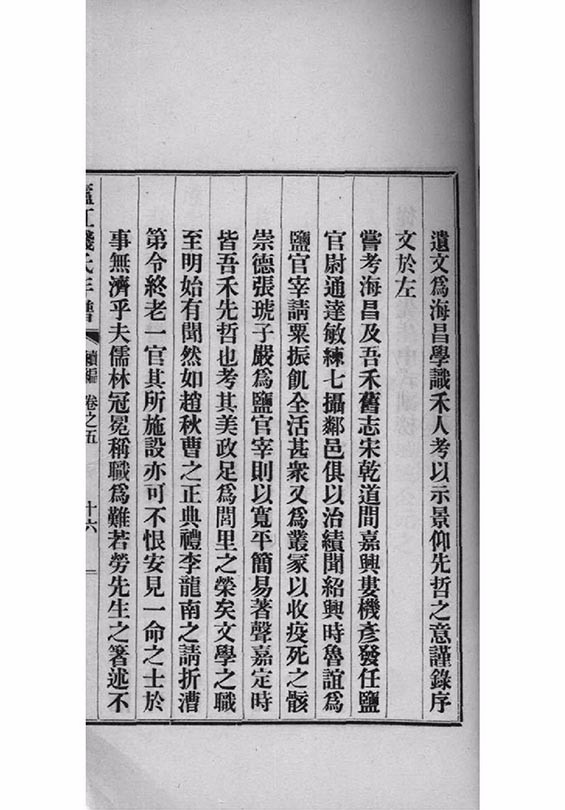 遺文爲海昌學識禾人考以示景仰先哲之意謹錄序
文於左
嘗考海昌及吾禾舊志宋乾道間嘉興婁機彥發任鹽
官尉通達敏練七攝鄰邑俱以治績聞紹興時魯誼爲
鹽官宰請粟振飢全活甚衆又爲叢冢以收疫死之骸
崇德張琥子嚴爲鹽官宰則以寬平簡易著聲嘉定時
皆吾禾先哲也考其美政足爲閭里之榮矣文學之職
至明始有聞然如趙秋曹之正典禮李龍南之請折漕
第令終老一官其所施設亦可不恨安見一命之士於
事無濟乎夫儒林冠冕稱職爲難若勞先生之箸述不
錢氏 續編 卷之五 十六